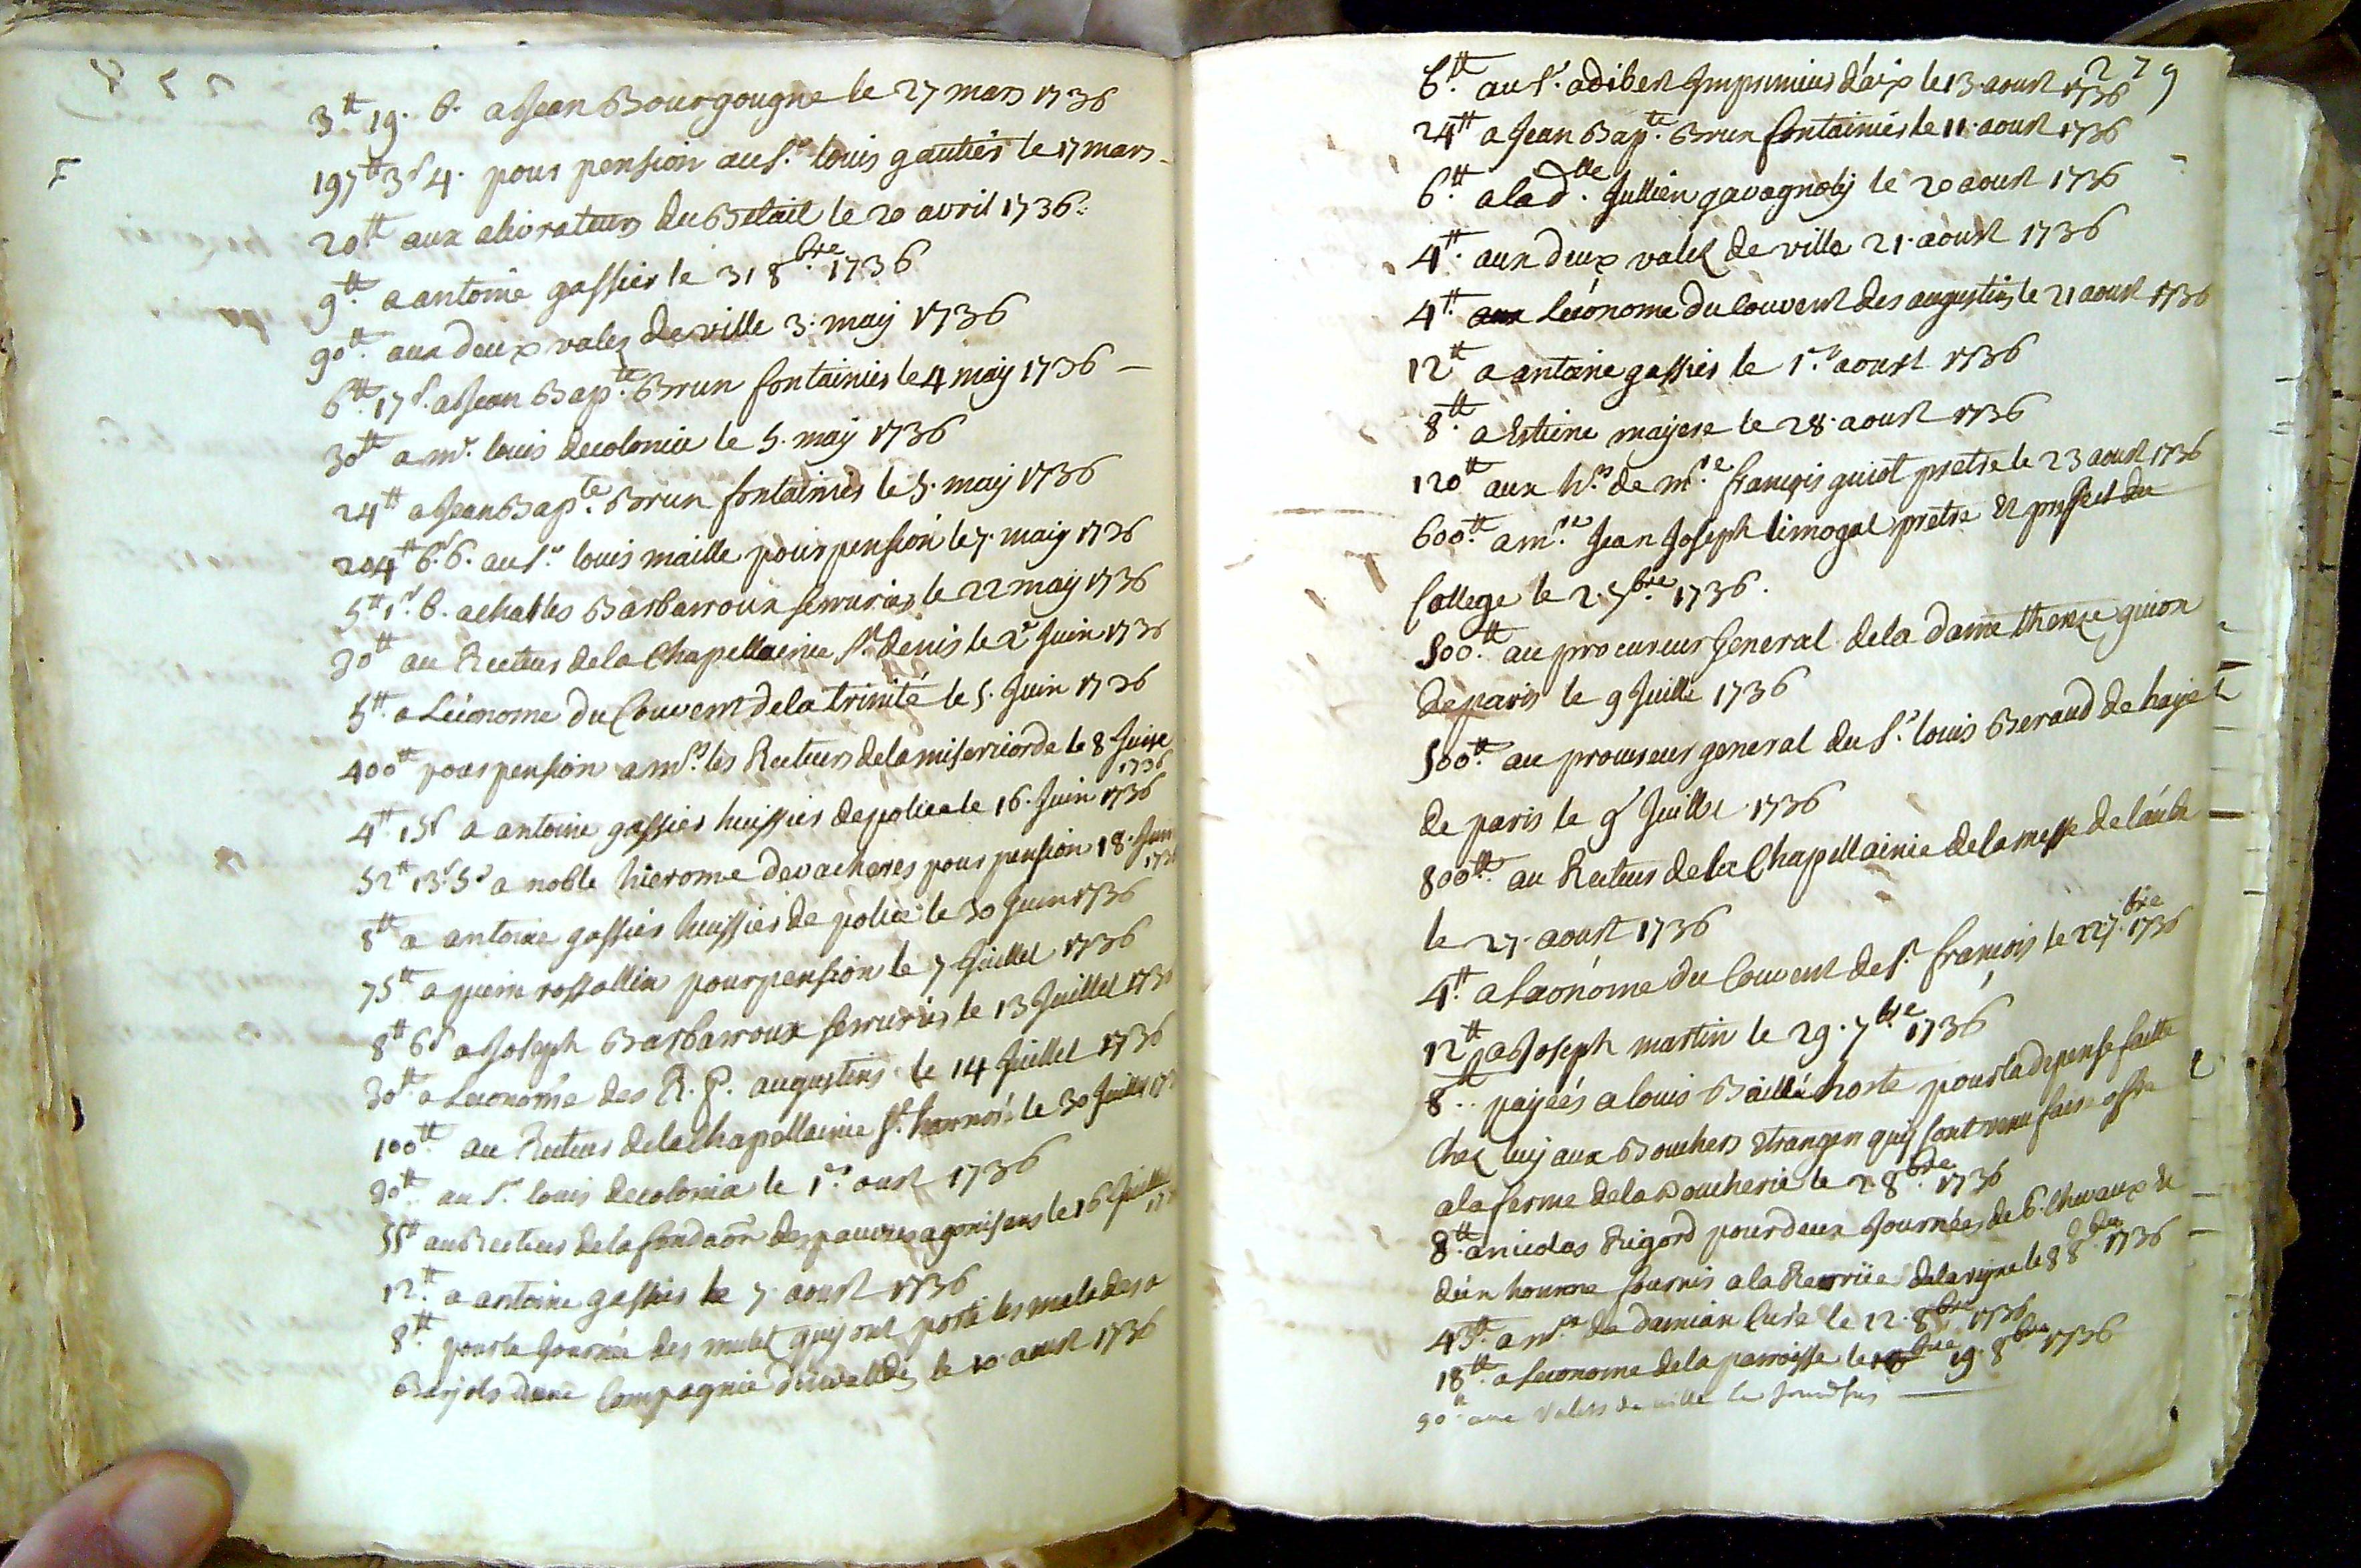 3tt 19. 6. a Jean Bourgougne le 27 mars 1736
197tt 3s 4. pour pension au Sr. louis gautier le 17 mars
20tt aux alivrateurs du Betail le 20 avril 1736
9tt. a antoine gassier le 31 8bre. 1736
90tt. aux deux valez de ville 3. may 1736
6tt. 17s. a Jean Bapte. Brun fontainier le 4 may 1736
30tt a mr. louis decolonia le 5. may 1736
24tt a Jean Bapte. Brun fontainier le 5. may 1736
204tt 6s. 6. au Sr. louis maille pour pension le 7. may 1736
5tt 1s. 6. a charles Barbarroux serrurier le 22 may 1736
30tt au Recteur de la Chapellainie St. denis le 2e Juin 1736
5tt. a Léconome du Couvent de la trinité le 5. Juin 1736
400tt pour pension a mrs. les Recteurs de la misericorde le 8 Juin
1736
4tt. 15s a antoine gassier huissier de police le 16. Juin 1736
52tt 13s. 5d a noble hierome devacheres pour pension 18. Juin
1736
8tt a antoine gassier huissier de police le 30 Juin 1736
75tt a rossollin pour pension le 7 Juillet 1736
8tt 6s a Joseph Barbarroux serrurier le 13 Juillet 173
30tt a Leconome des R. P. augustins le 14 Juillet 1736
100tt au Recteur de la Chapellainie St. honnoré le 30 Juillet 17
30tt au Sr. louis decolonia le 1er. oust 1736
55tt au Recteur de la fondaõn des pauvres agonisans le 16 Juillet
17
12tt. a antoine gassier le 7. aoust 1736
8tt pour la Journée des mulet quy ont porté les malades a
Barjols dune Compagnie le 10. aoust 1736
279
6tt. au Sr. adibert Imprimeur d'aix le 13. aoust 1736
24tt a Jean Bapte. Brun fontainier le 11. aoust 1736
6tt. a la dlle. Jullien gavagnoly le 20 aoust 1736
4tt. aux deux valez de ville 21. aoust 1736
4tt. Léconome du Couvent des augustins le 21 aoust 1736
12tt a antoine gassier le 1er. aoust 1736
8tt. a Estiene mayere le 28. aoust 1736
120tt. aux hrs. de mre. françois guiot pretre le 23 aoust 1736
600tt. a mre. Jean Joseph limogal pretre & preffect du
College le 2. 7bre. 1736.
500tt. au procureur General de la dame guion
de paris le 9 Juille 1736
500tt. au procureur general du Sr. louis Beraud de haye
de paris le 9 Juillet 1736
800tt. au Recteur de la Chapellainie de la messe de laube
le 27. aoust 1736
4tt. a Léconome du Couvent de St. françois le 22 7bre. 1736
12tt a Joseph martin le 29. 7bre. 1736
8tt.. payéés a louis Baille hoste pour la depense faitte
Chez luy aux Bouchers Etrangers quy sont venu faire offre
a la ferme de la Boucherie le 2 8bre. 1736
8tt. a nicolas Rigord pour deux Journées de 6. Chevaux &
d'un homme fournis a la de la vigne le 8 8bre. 1736
45tt. a mre. de damian Curé le 12. 8bre 1736
18tt. a Leconome de la parroisse le 19. 8bre 1736
90tt. aux valets de ville le